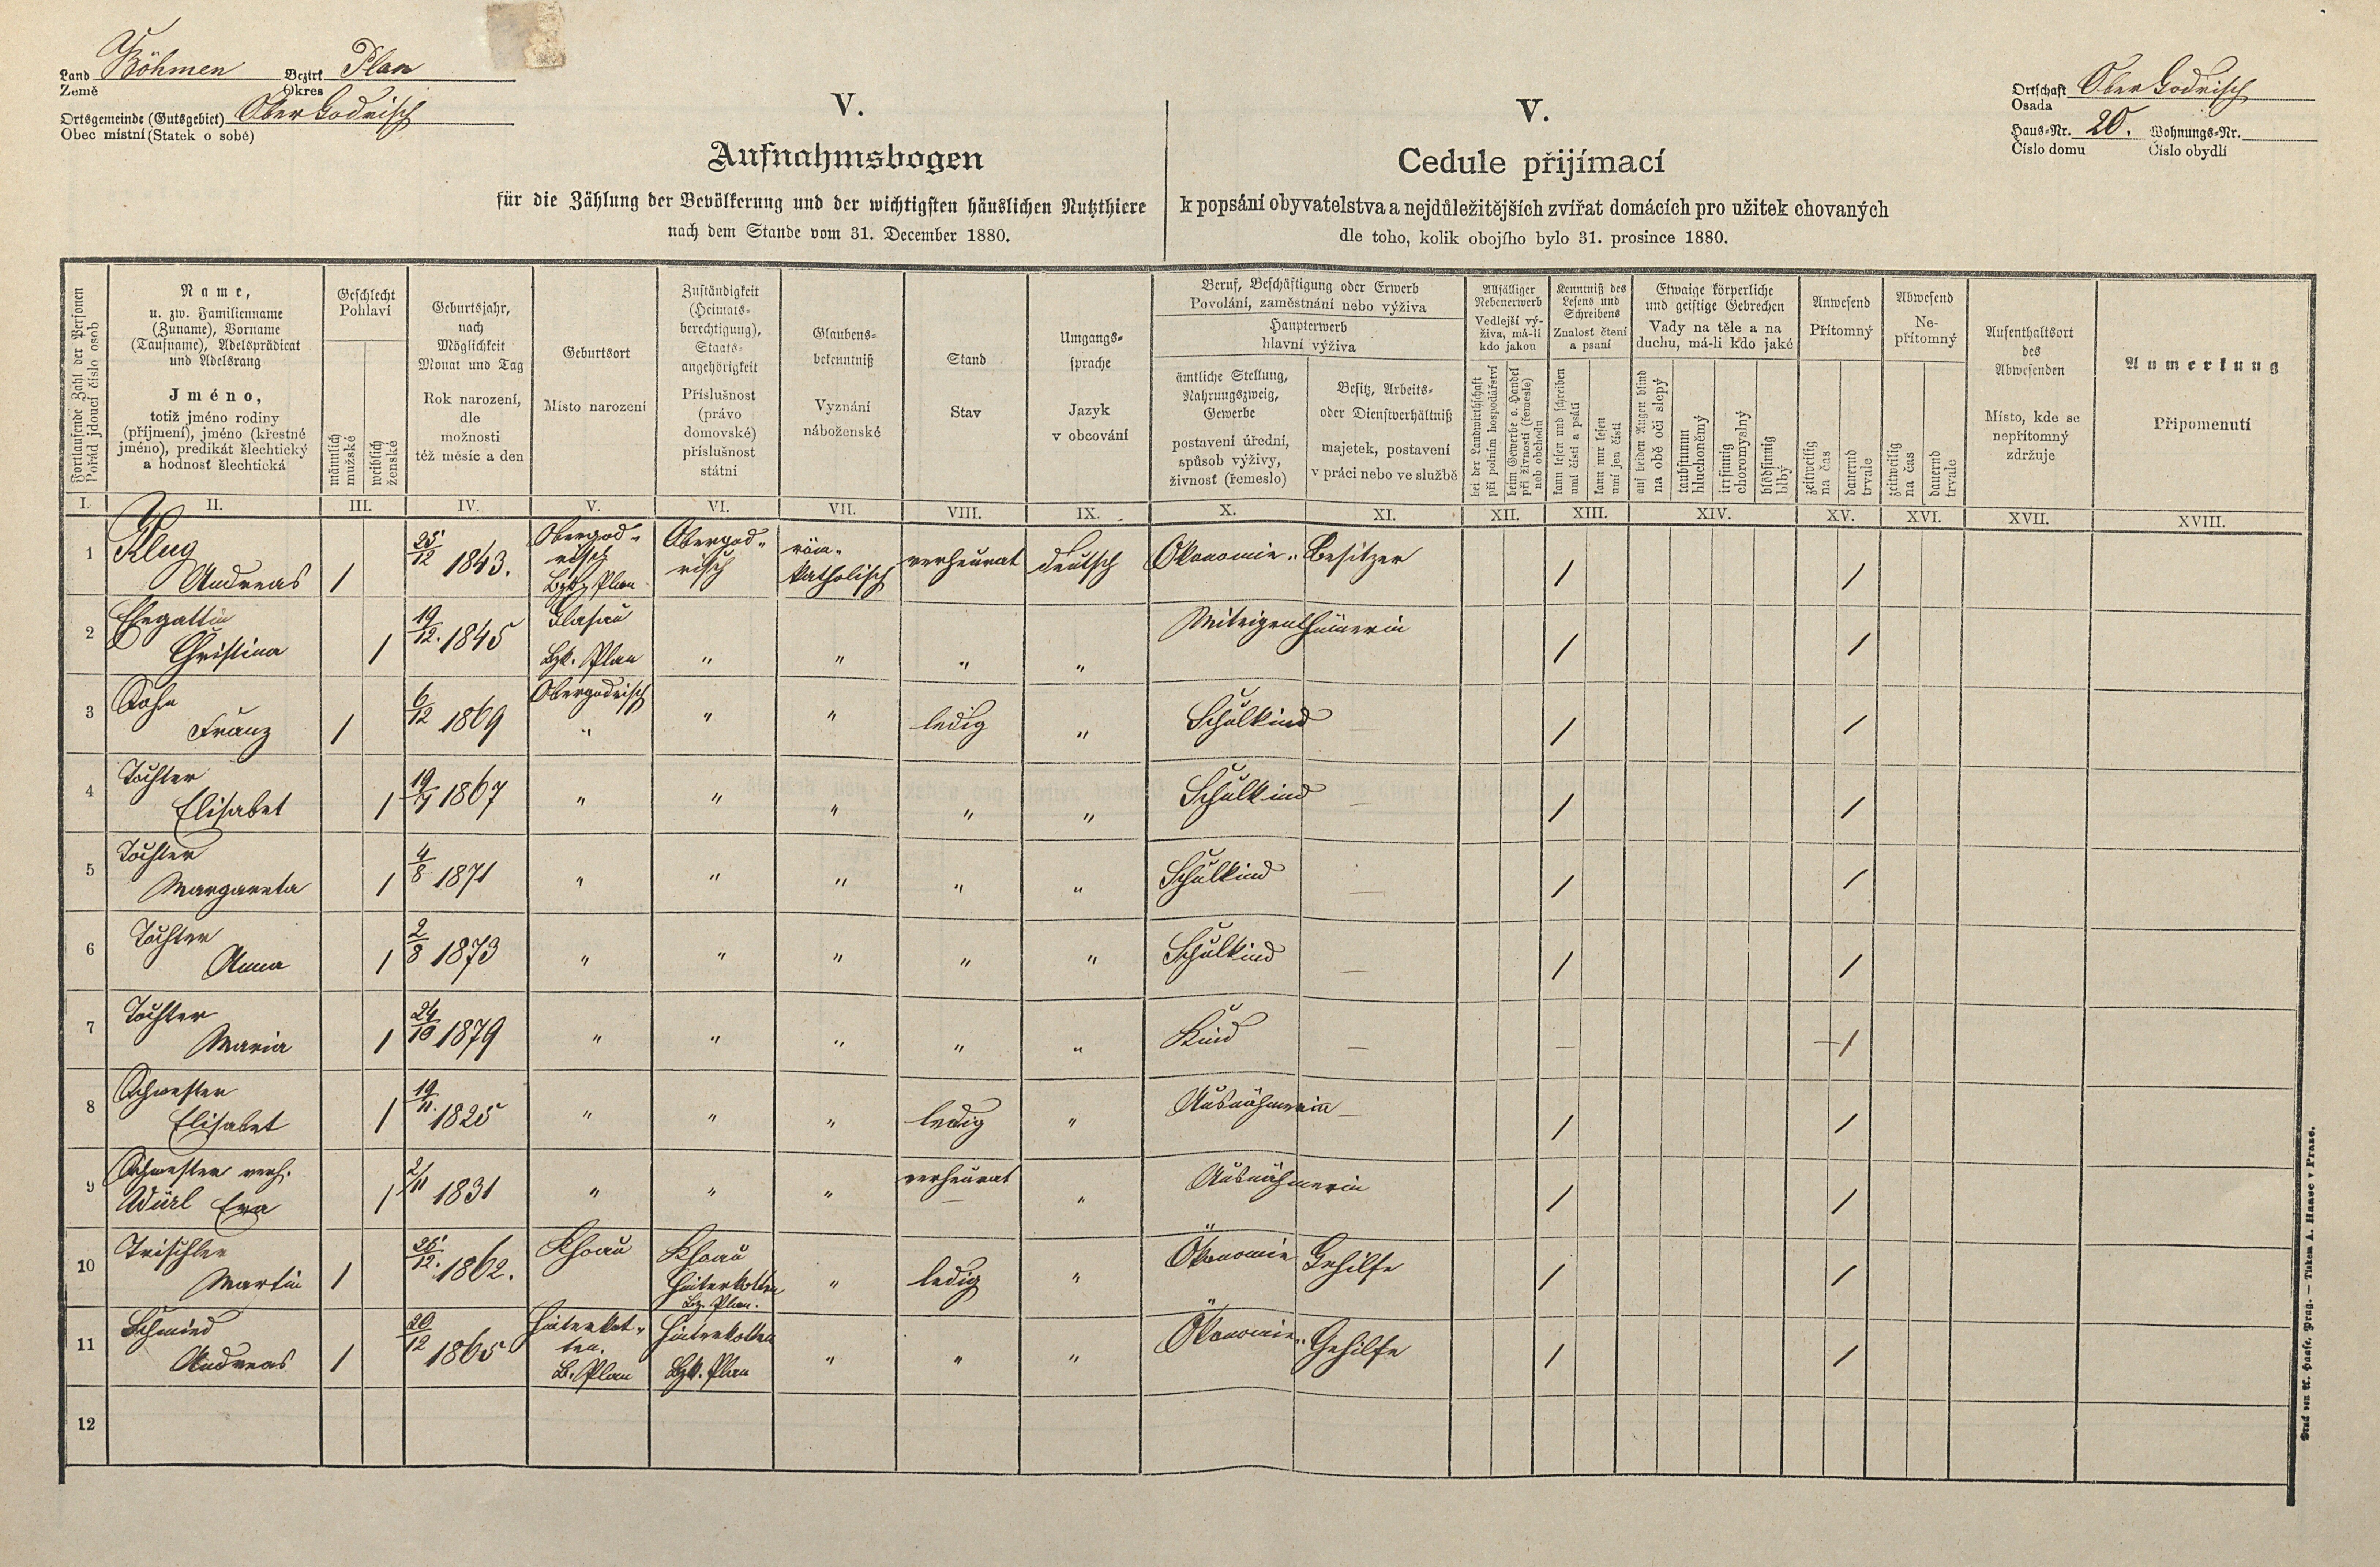 Land Böhmen Bezirk Plan
Země Okres
Ortsgemeinde (Gutsgebiet) Ober Godrisch
Obec místní (Statek o sobě)
V.
Aufnahmsbogen
für die Zählung der Bevölkerung und der wichtigsten häuslichen Nutzthiere
nach dem Stande vom 31. December 1880.
V.
Cedule přijímací
k popsání obyvatelstva a nejdůležitějších zvířat domácích pro užitek chovaných
dle toho, kolik obojího bylo 31. prosince 1880.
Ortschaft Ober Godrisch
Osada
Haus-Nr. 20. Wohnungs-Nr.
Číslo domu Číslo obydlí
Fortlaufende Zahl der Personen
Pořád jdoucí číslo osob
Name,
u. zw. Familienname
(Zuname), Vorname
(Taufname), Adelsprädicat
und Adelsrang
Jméno,
totiž jméno rodiny
(příjmení), jméno (křestné
jméno), predikát šlechtický
a hodnosť šlechtická
Geschlecht
Pohlaví
männlich
mužské
weiblich
ženské
Geburtsjahr,
nach
Möglichkeit
Monat und Tag
Rok narození,
dle
možnosti
též měsíc a den
Geburtsort
Místo narození
Zuständigkeit
(Heimats-
berechtigung),
Staats-
angehörigkeit
Příslušnost
(právo
domovské)
příslušnost
státní
Glaubens-
bekenntniß
Vyznání
náboženské
Stand
Stav
Umgangs-
sprache
Jazyk
v obcování
Beruf, Beschäftigung oder Erwerb
Povolání, zaměstnání nebo výživa
Haupterwerb
hlavní výživa
ämtliche Stellung,
Nahrungszweig,
Gewerbe
postavení úřední,
spůsob výživy,
živnosť (řemeslo)
Besitz, Arbeits-
oder Dienstverhältniß
majetek, postavení
v práci nebo ve službě
Allfälliger
Nebenerwerb
Vedlejší vý-
živa, má-li
kdo jakou
bei der Landwirthschaft
při polním hospodářství
beim Gewerbe o. Handel
při živnosti (řemesle)
neb obchodu
Kenntniß des
Lesens und
Schreibens
Znalosť čtení
a psaní
kann lesen und schreiben
umí čísti a psáti
kann nur lesen
umí jen čísti
Etwaige körperliche
und geistige Gebrechen
Vady na těle a na
duchu, má-li kdo jaké
auf beiden Augen blind
na obě oči slepý
taubstumm
hluchoněmý
irrsinnig
choromyslný
blödsinnig
blbý
Anwesend
Přítomný
zeitweilig
na čas
dauernd
trvale
Abwesend
Ne-
přítomný
zeitweilig
na čas
dauernd
trvale
Aufenthaltsort
des
Abwesenden
Místo, kde se
nepřítomný
zdržuje
Anmerkung
Připomenutí
I. II. III. IV. V. VI. VII. VIII. IX. X. XI. XII. XIII. XIV. XV. XVI. XVII. XVIII.
1 Klug Andreas / 25/12 1843. Obergod-risch Bzk. Plan Obergod-risch röm-katholisch verheurat deutsch Ökonomie-Besitzer / /
2 Ehegattin Christina / 19/12. 1845 Glasau Bzk. Plan " " " " Miteigenthümerin / /
3 Sohn Franz / 6/12 1869 Obergodrisch " " " ledig " Schulkind — / /
4 Tochter Elisabet / 1867 " " " " " Schulkind — / /
5 Tochter Margareta / 4/8 1871 " " " " " Schulkind — / /
6 Tochter Anna / 2/8 1873 " " " " " Schulkind — / /
7 Tochter Maria / 24/10 1879 " " " " " Kind — — — /
8 Schwester Elisabet / 19/11. 1825 " " " ledig " Ausnähmerin — / /
9 Schwester verh. Würl Eva / 2/11 1831 " " " verheurat " Ausnähmerin / /
10 Trischler Martin / 25/12. 1862. Khoau Khoau Hinterkotten Bz. Plan. " ledig " Ökonomie Gehilfe / /
11 Schmied Andreas / 20/12 1865 Hinterkot-ten. B. Plan Hinterkotten Bzk. Plan " " " Ökonomie-Gehilfe / /
12
Druck von A. Haase, Prag. — Tiskem A. Haase v Praze.